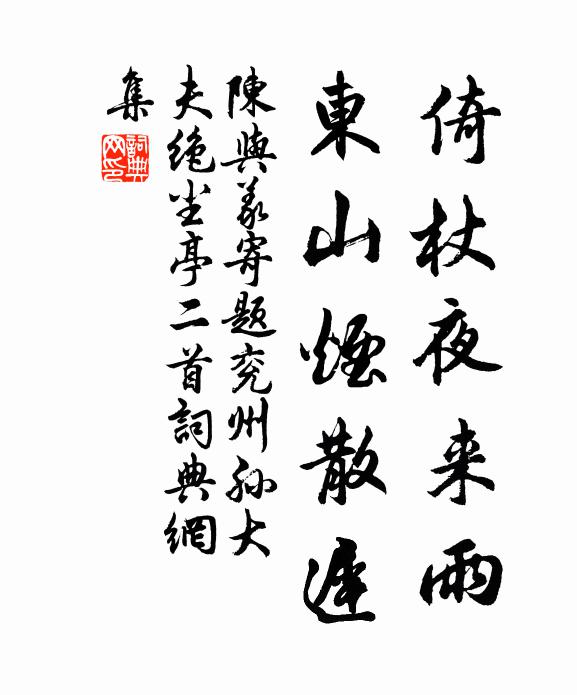 倚杖夜来雨
東山煙散遲
陳與義寄題兖州孙大
夫绝尘亭二首詞典網
集
詞典
网印